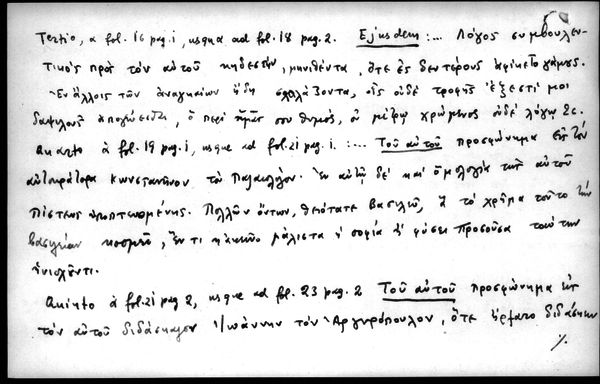 Tertio, a fol. 16 pag. i, usque ad fol. 18 pag. 2. Ejusdem :... Λόγος συμβουλευ-
τικὸς πρὸς τὸν αὐτοῦ κηδεστήν, μηνιθέντα, ὅτε ἐς δευτέρους ἀφίκετο γάμους.
Ἐν ἄλλοις τῶν ἀναγκαίων ἤδη οἷς οὐδὲ τροφῆς ἔξεστί μοι
δαψιλοῦς ὁ περὶ ἡμᾶς σου θυμός, οὐ μέτρῳ χρώμενος οὐδὲ λόγῳ &c.
Quarto à fol. 19 pag. i, usque ad fol. 21 pag. i. :... Τοῦ αὐτοῦ προσφώνημα εἰς τὸν
αὐτοκράτορα Κωνσταντῖνον τὸν Παλαιολόγον. Ἐν αὐτῷ δὲ καὶ ὁμολογία τῆς αὐτοῦ
πίστεως Πολλῶν ὄντων, θειότατε βασιλεῦ, ἃ τὸ χρῆμα τοῦτο τὴν
βασιλείαν κοσμεῖ, ἕν τι μάλιστα ἡ σοφία φύσει προσοῦσα τούτων

Quinto à fol. 21 pag 2, usque ad fol. 23 pag. 2 Τοῦ αὐτοῦ προσφώνημα εἰς
τὸν αὐτοῦ διδάσκαλον Ἰωάννην τὸν Ἀργυρόπουλον, ὅτε ἤρξατο διδάσκειν
·/.